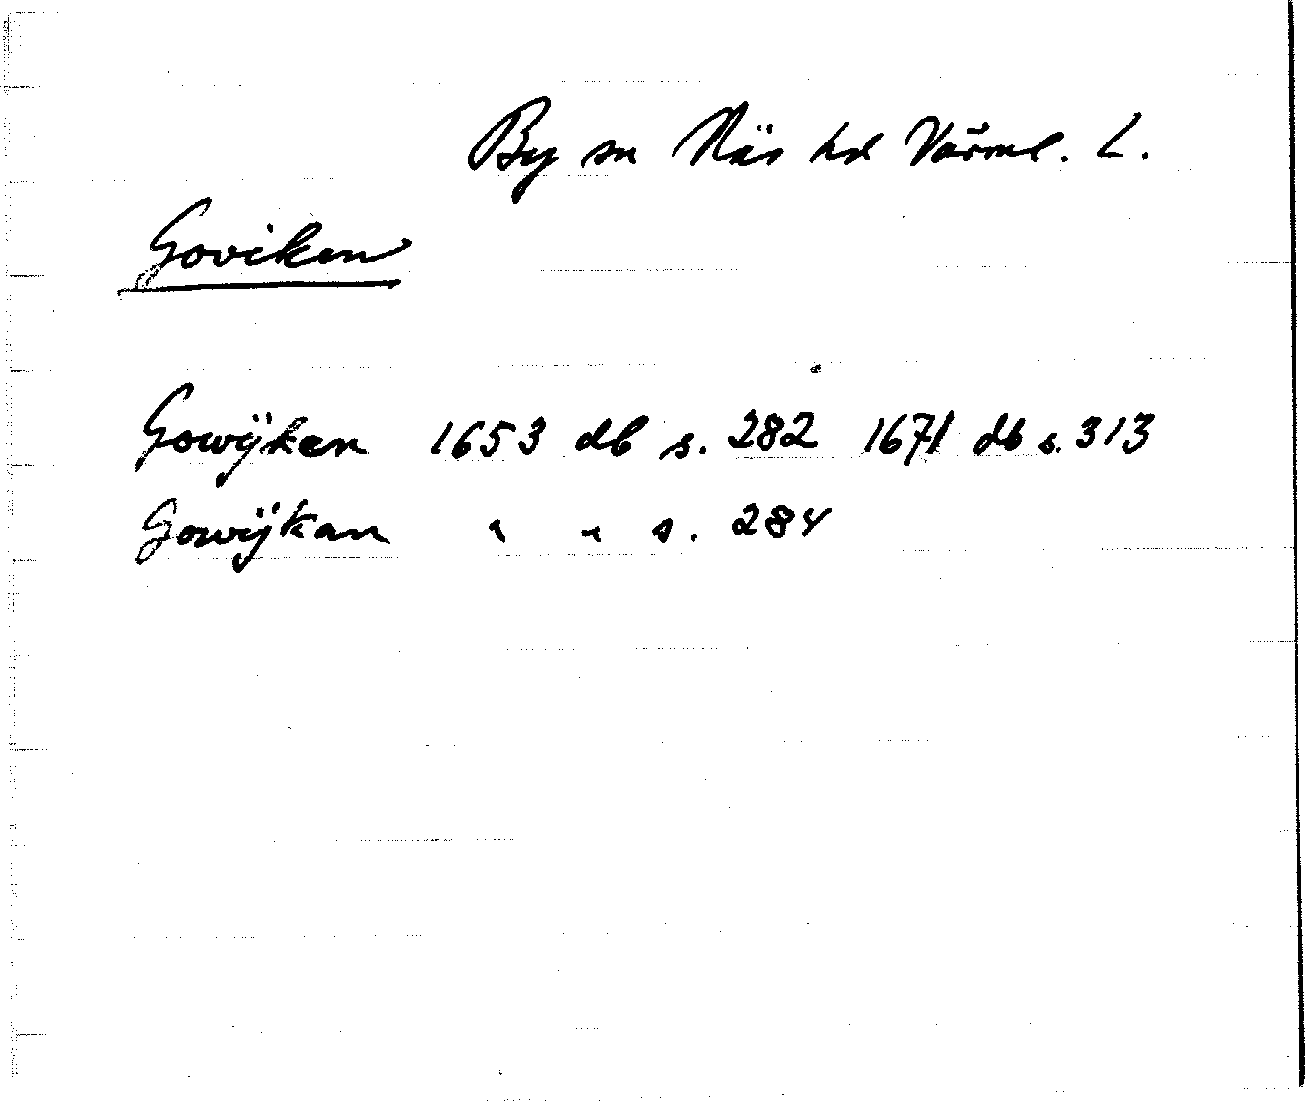 By sn Näs hd Värml. L.
Goviken
Gowÿken 1653 db s. 282 1671 db s. 313
Gowÿkan " " s. 284